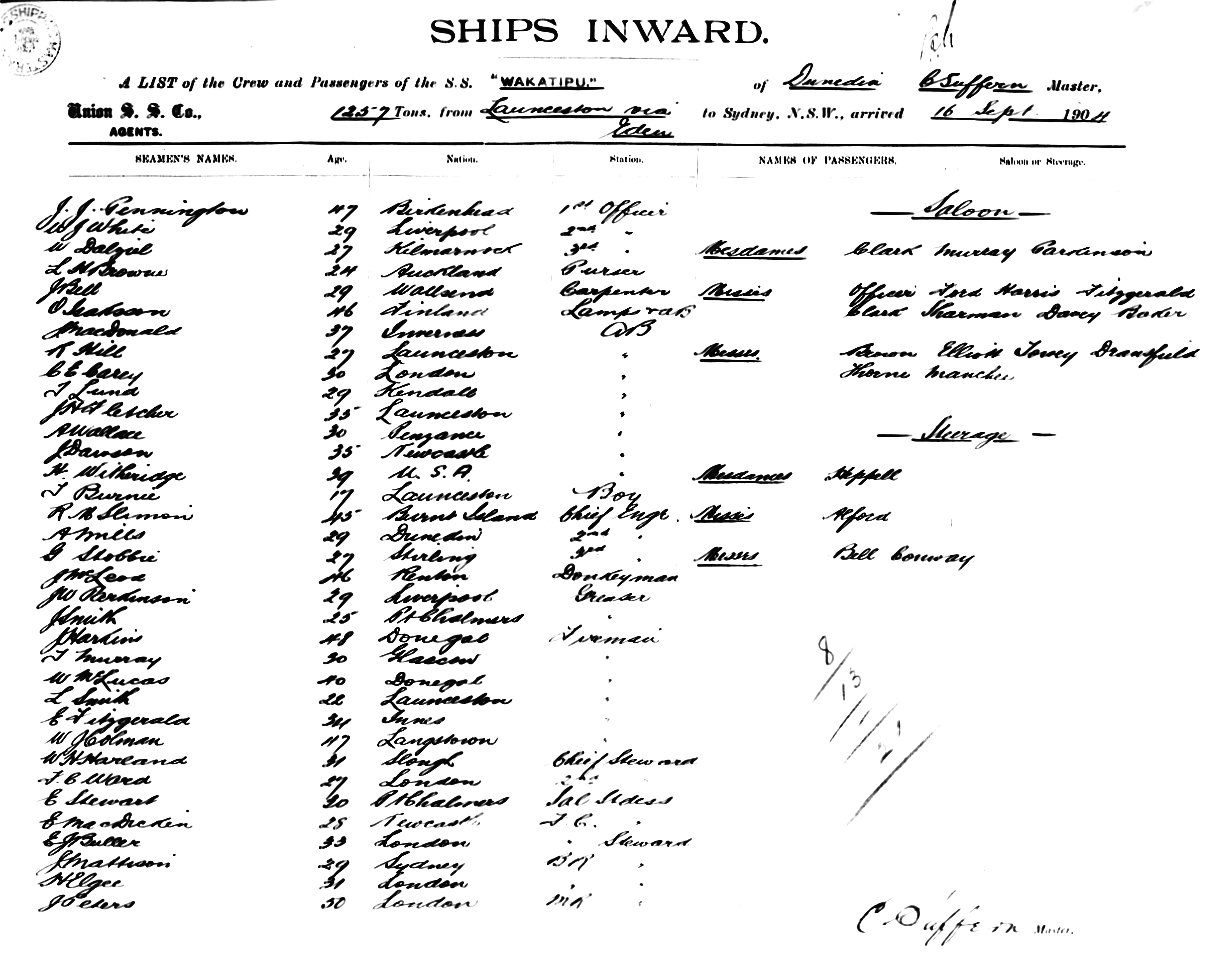 SHIPS INWARD.
A LIST of the Crew and Passengers of the S.S. "WAKATIPU." of Dunedin C Suffern Master,
Union S. S. Co., AGENTS. 1257 Tons, from Launceston via Eden to Sydney, N.S.W., arrived 16 Sept. 1904
SEAMEN'S NAMES. Age. Nation. Station. NAMES OF PASSENGERS. Saloon or Steerage.
J. J. Pennington 47 Birkenhead 1st Officer — Saloon —
W J White 29 Liverpool 2nd "
W Dalziel 27 Kilmarnock 3rd " Mesdames Clark Murray Parkinson
L H Browne 24 Auckland Purser
J Bell 29 Wallsend Carpenter Misses Officer Ford Harris Fitzgerald
O Isakson 46 Finland Lamps & AB Clark Sharman Davey Bader
J MacDonald 37 Inverness AB
R Hill 27 Launceston " Messrs. Brown Elliott Towey Dransfield
C E Carey 30 London " Thorne Manchee
T Lund 29 Kendall "
J H Fletcher 35 Launceston "
A Wallace 30 Penzance " — Steerage —
J Dawson 35 Newcastle "
H. Witheridge 39 U. S. A. " Mesdames Heppell
T Burnie 17 Launceston Boy
R McSlimon 45 Burnt Island Chief Engr. Misses Alford
A Mills 29 Dunedin 2nd "
G Stobbie 27 Stirling 3rd " Messrs Bell Conway
J McLeod 46 Renton Donkeyman
J W Perkinson 29 Liverpool Greaser
J Smith 25 Pt Chalmers "
J Harkins 48 Donegal Fireman
T Murray 30 Glascow "
W McLucas 40 Donegal "
L Smith 22 Launceston "
E Fitzgerald 34 Innes "
W J Colman 47 Langstown "
W H Harland 31 Slough Chief Steward
F. C Ward 27 London 2nd "
E Stewart 30 Pt Chalmers Sal Stdess
E MacDicken 28 Newcastle F. C. "
E J Buller 33 London " Steward
J Mathison 29 Sydney BR "
H Elgee 31 London " "
J Peters 30 London MR "
8/13/1/21
C Suffern Master.